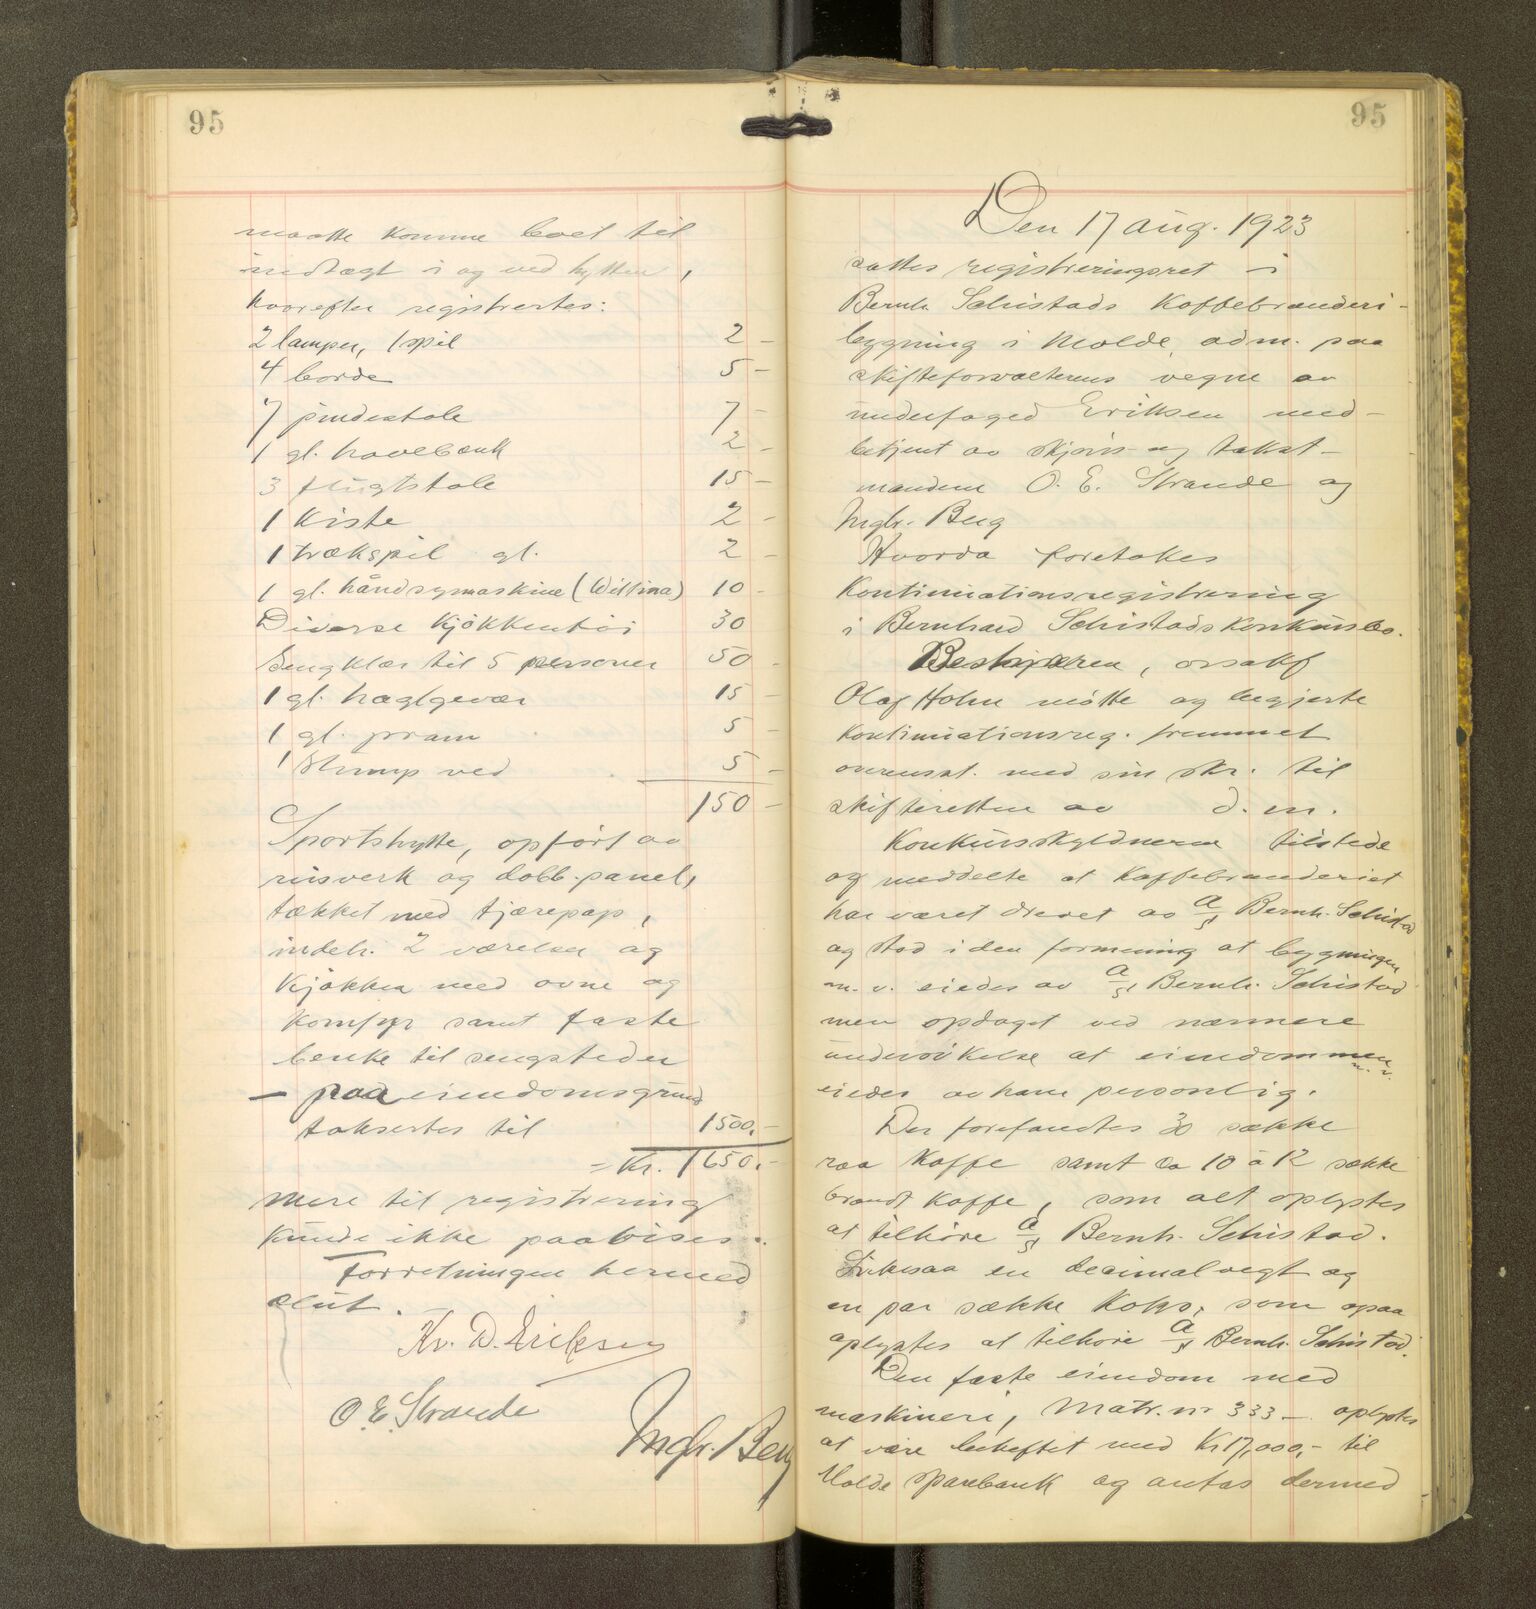 95
maatte komme boet til
indtægt i og ved hytten,
hvorefter registrertes:
2 lamper, 1 spil 2 –
4 borde 5 –
7 pindestole 7 –
1 gl. havebænk 2 –
3 flugtstole 15 –
1 Kiste 2 –
1 trækspil gl. 2 –
1 gl. håndsymaskine (Willina) 10 –
Diverse kjøkkentøi 30
Sengklær til 5 personer 50 –
1 gl. haglgevær 15 –
1 gl. pram 5 –
1 slump ved 5 –
150 –
Sportshytte, opført av
reisverk og dobb. panel,
tækket med tjærepap,
indeh. 2 værelser og
Kjøkken med ovne og
Komfyr samt faste
benke til sengsteder
– paa eiendomsgrund
taksertes til 1500,–
= Kr. 1650,–
mere til registrering
kunde ikke paavises.
Forretningen hermed
slut.
Kr. D. Eriksen
O. E. Strande
Ingbr. Berg
95
Den 17 aug. 1923
sattes registreringsret i
Bernh. Schistads Kaffebrænderi-
bygning i Molde, adm. paa
skifteforvalterens vegne av
underfoged Eriksen med-
betjent av skjøns- og takst-
mændene O. E. Strande og
Ingbr. Berg
Hvorda foretokes
Kontinuationsregistrering
i Bernhard Schistads konkursbo.
Bestyreren, o.r.sakf
Olaf Holm møtte og begjærte
Kontinuationsreg. fremmet
overensst. med sin skr. til
skifteretten av d. m.
Konkursskyldneren tilstede
og meddelte at Kaffebrænderiet
har været drevet av A/S Bernh. Schistad
og stod i den formening at bygningen
m. v. eiedes av A/S Bernh. Schistad
men opdaget ved nærmere
undersøkelse at eiendommen
m. v.
eiedes av ham personlig.
Der forefandtes 30 sække
raa Kaffe samt ca 10 à 12 sække
brændt Kaffe, som alt oplystes
at tilhøre A/S Bernh. Schistad.
Likesaa en decimalvegt og
en par sække Koks, som ogsaa
oplystes at tilhøre A/S Bernh. Schistad.
Den faste eiendom med
maskineri, Matr. nr 333 – oplystes
at være beheftet med Kr 17,000,– til
Molde sparebank og antas dermed